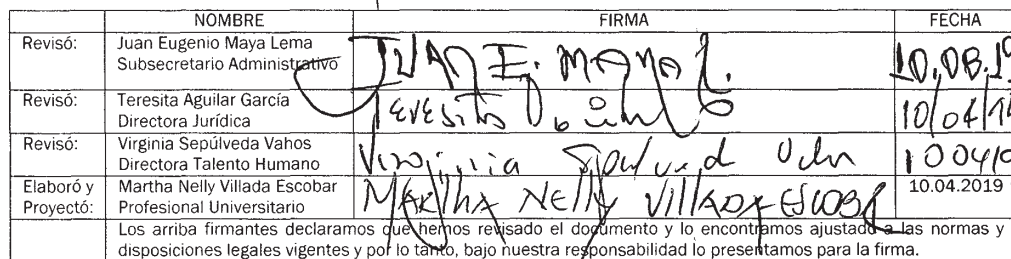 NOMBRE FIRMA FECHA
Revisó: Juan Eugenio Maya Lema
Subsecretario Administrativo
JUAN E. MAYA L.
Revisó: Teresita Aguilar García
Directora Jurídica
Teresita
10/04/19
Revisó: Virginia Sepúlveda Vahos
Directora Talento Humano
Virginia
Elaboró y Proyectó: Martha Nelly Villada Escobar
Profesional Universitario
MARTHA NELLY VILLADA ESCOBAR
10.04.2019
Los arriba firmantes declaramos que hemos revisado el documento y lo encontramos ajustado a las normas y
disposiciones legales vigentes y por lo tanto, bajo nuestra responsabilidad lo presentamos para la firma.